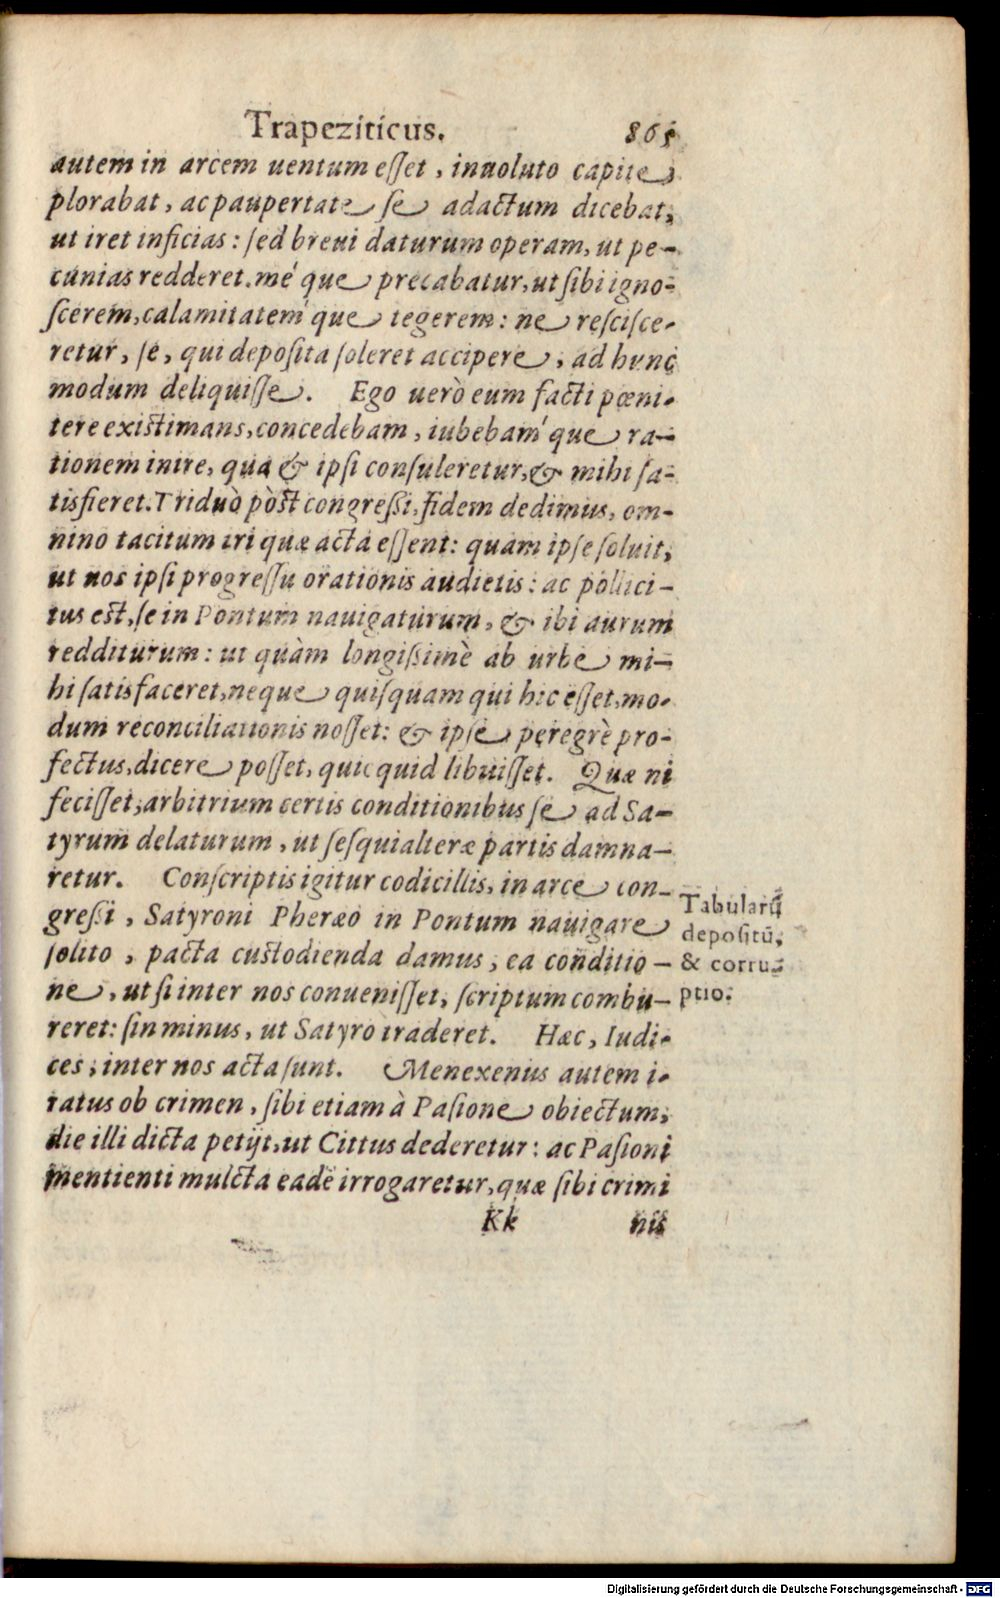 Trapeziticus. 865
autem in arcem uentum eſſet, inuoluto capite
plorabat, ac paupertate ſe adactum dicebat,
ut iret inficias: ſed breui daturum operam, ut pe-
cunias redderet. mé que precabatur, ut ſibi igno-
ſcerem, calamitateḿ que tegerem: ne reſciſce-
retur, ſe, qui depoſita ſoleret accipere, ad hunc
modum deliquiſſe. Ego uerò eum facti pœni-
tere existimans, concedebam, iubebaḿ que ra-
tionem inire, qua & ipſi conſuleretur, & mihi ſa-
tisfieret. Triduò pòst congreßi, fidem dedimus, om-
nino tacitum iri quæ acta eſſent: quam ipſe ſoluit,
ut nos ipſi progreſſu orationis audietis: ac pollici-
tus est, ſe in Pontum nauigaturum, & ibi aurum
redditurum: ut quàm longißimè ab urbe mi-
hi ſatisfaceret, neque quiſquam qui hic eſſet, mo-
dum reconciliationis noſſet: & ipſe peregrè pro-
fectus, dicere poſſet, quicquid libuiſſet. Quæ ni
feciſſet, arbitrium certis conditionibus ſe ad Sa-
tyrum delaturum, ut ſeſquialteræ partis damna-
retur. Conſcriptis igitur codicillis, in arce con-
greßi, Satyroni Pheræo in Pontum nauigare
ſolito, pacta custodienda damus, ea conditio-
ne, ut ſi inter nos conueniſſet, ſcriptum combu-
reret: ſin minus, ut Satyro traderet. Hæc, Iudi-
ces, inter nos acta ſunt. Menexenus autem i-
ratus ob crimen, ſibi etiam à Paſione obiectum,
die illi dicta petijt, ut Cittus dederetur: ac Paſioni
mentienti mulcta eadē irrogaretur, quæ ſibi crimi
Kk nis
Tabularū
depoſitū,
& corru-
ptio.
Digitalisierung gefördert durch die Deutsche Forschungsgemeinschaft - DFG